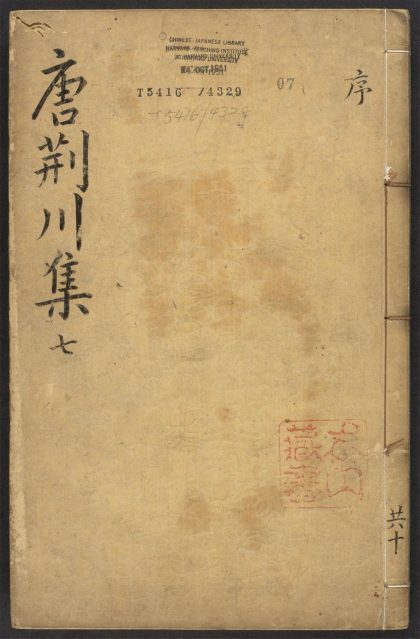 唐荊川集
七
CHINESE-JAPANESE LIBRARY
HARVARD-YENCHING INSTITUTE
AT HARVARD UNIVERSITY
OCT 1951
T5416 /4329
T5416/4329
07
序
共十